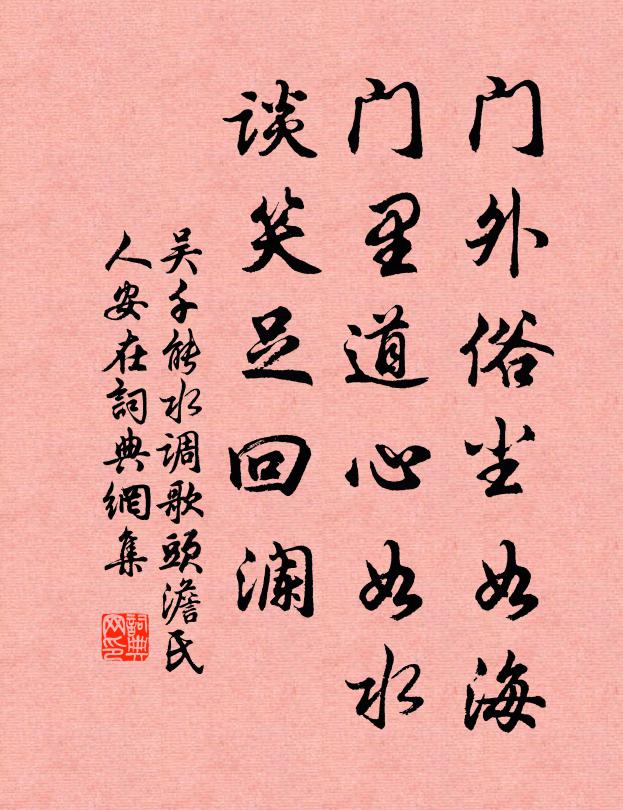 门外俗尘如海
门里道心如水
谈笑足回澜
吴千能水调歌頭澹氏
人安在詞典網集
詞典
网印